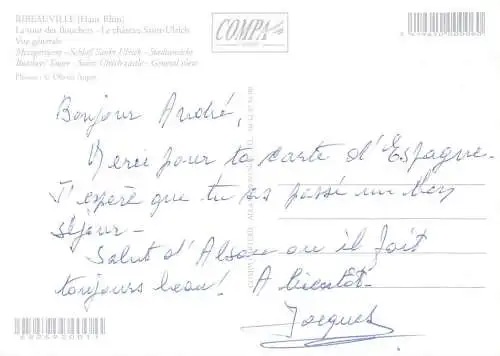 RIBEAUVILLE (Haut-Rhin)
La tour des Bouchers - Le château Saint-Ulrich
Vue générale
Metzgerturm - Schloß Sankt Ulrich - Stadtansicht
Butchers' Tower - Saint Ulrich castle - General view
Photos : © Olivier Auger
COMPA
Bonjour André,
Merci pour ta carte d'Espagne.
J'espère que tu as passé un bon
séjour -
Salut d'Alsace ou il fait
toujours beau! A bientôt.
Jacques
6926920011